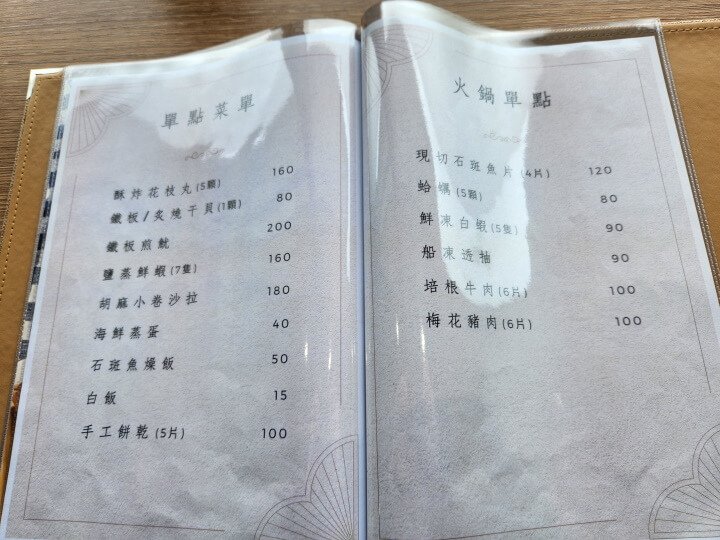 單點菜單
酥炸花枝丸(5顆) 160
鐵板/炙燒干貝(1顆) 80
鐵板煎魷 200
鹽蒸鮮蝦(7隻) 160
胡麻小卷沙拉 180
海鮮蒸蛋 40
石斑魚燥飯 50
白飯 15
手工餅乾(5片) 100
火鍋單點
現切石斑魚片(4片) 120
蛤蠣(5顆) 80
鮮凍白蝦(5隻) 90
船凍透抽 90
培根牛肉(6片) 100
梅花豬肉(6片) 100